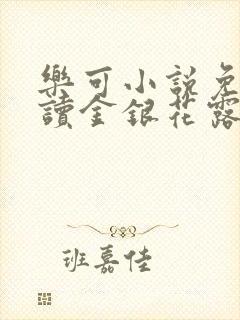 樂可小說免
讀金銀花露
班嘉佳